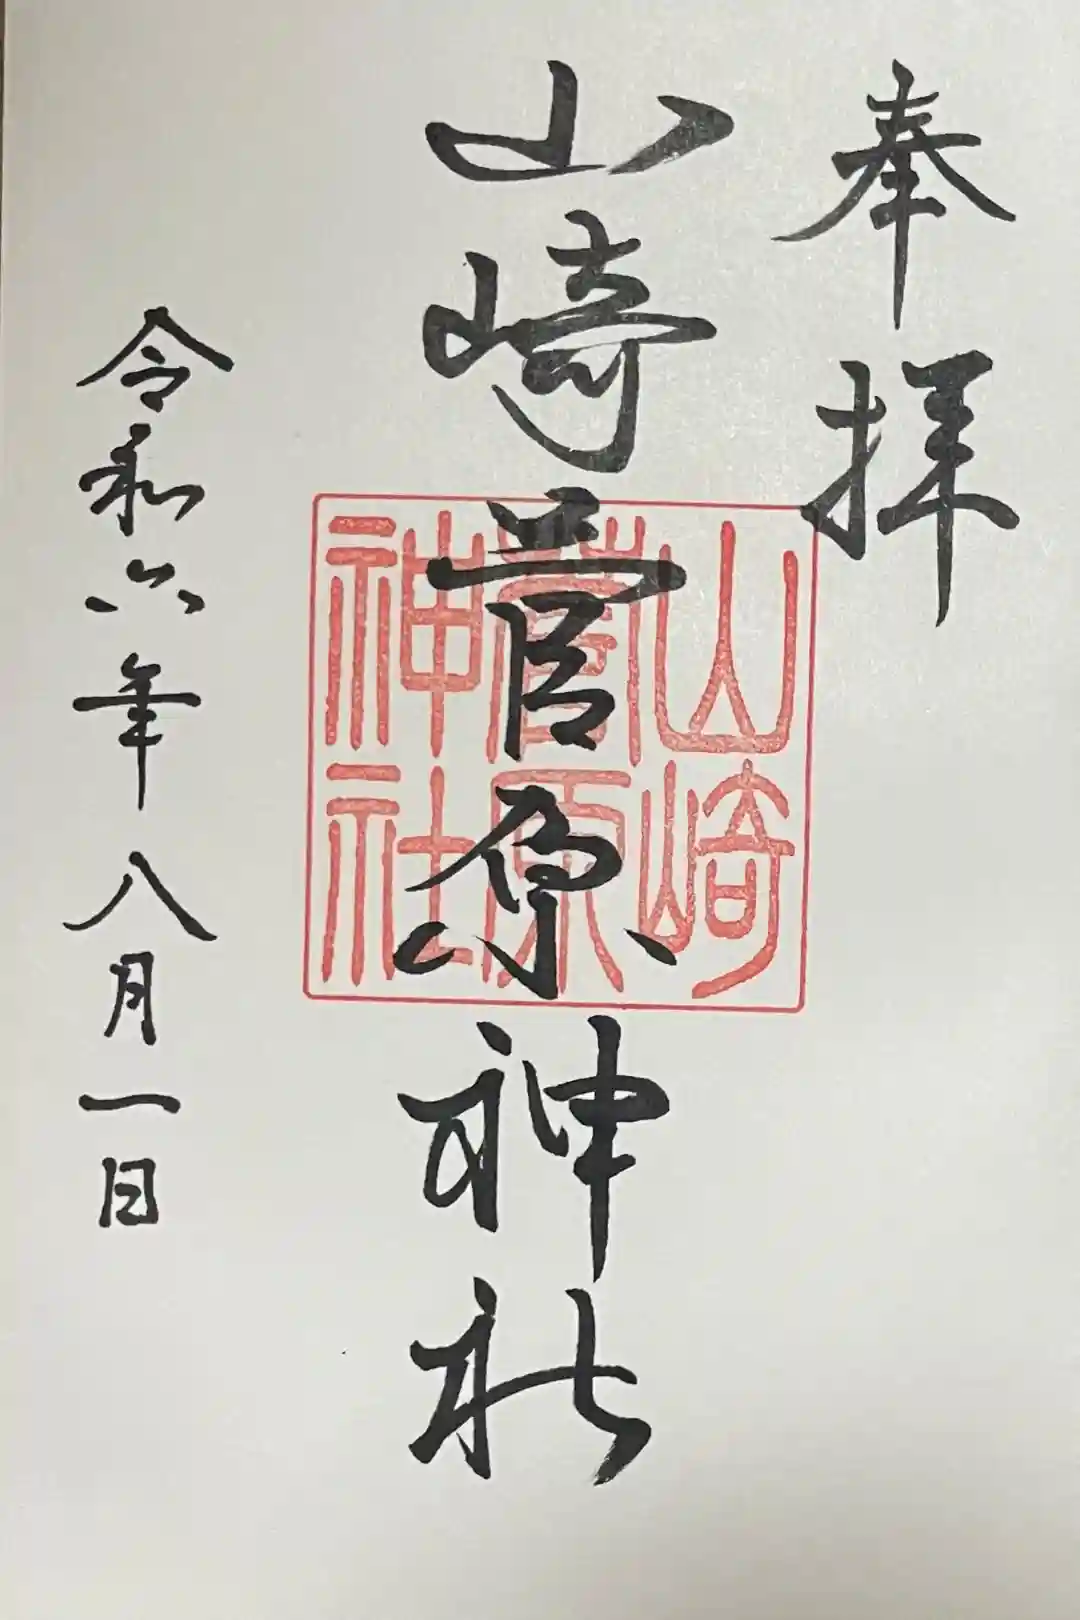 奉拝
山崎菅原神社
山崎
菅原
神社
令和六年八月一日